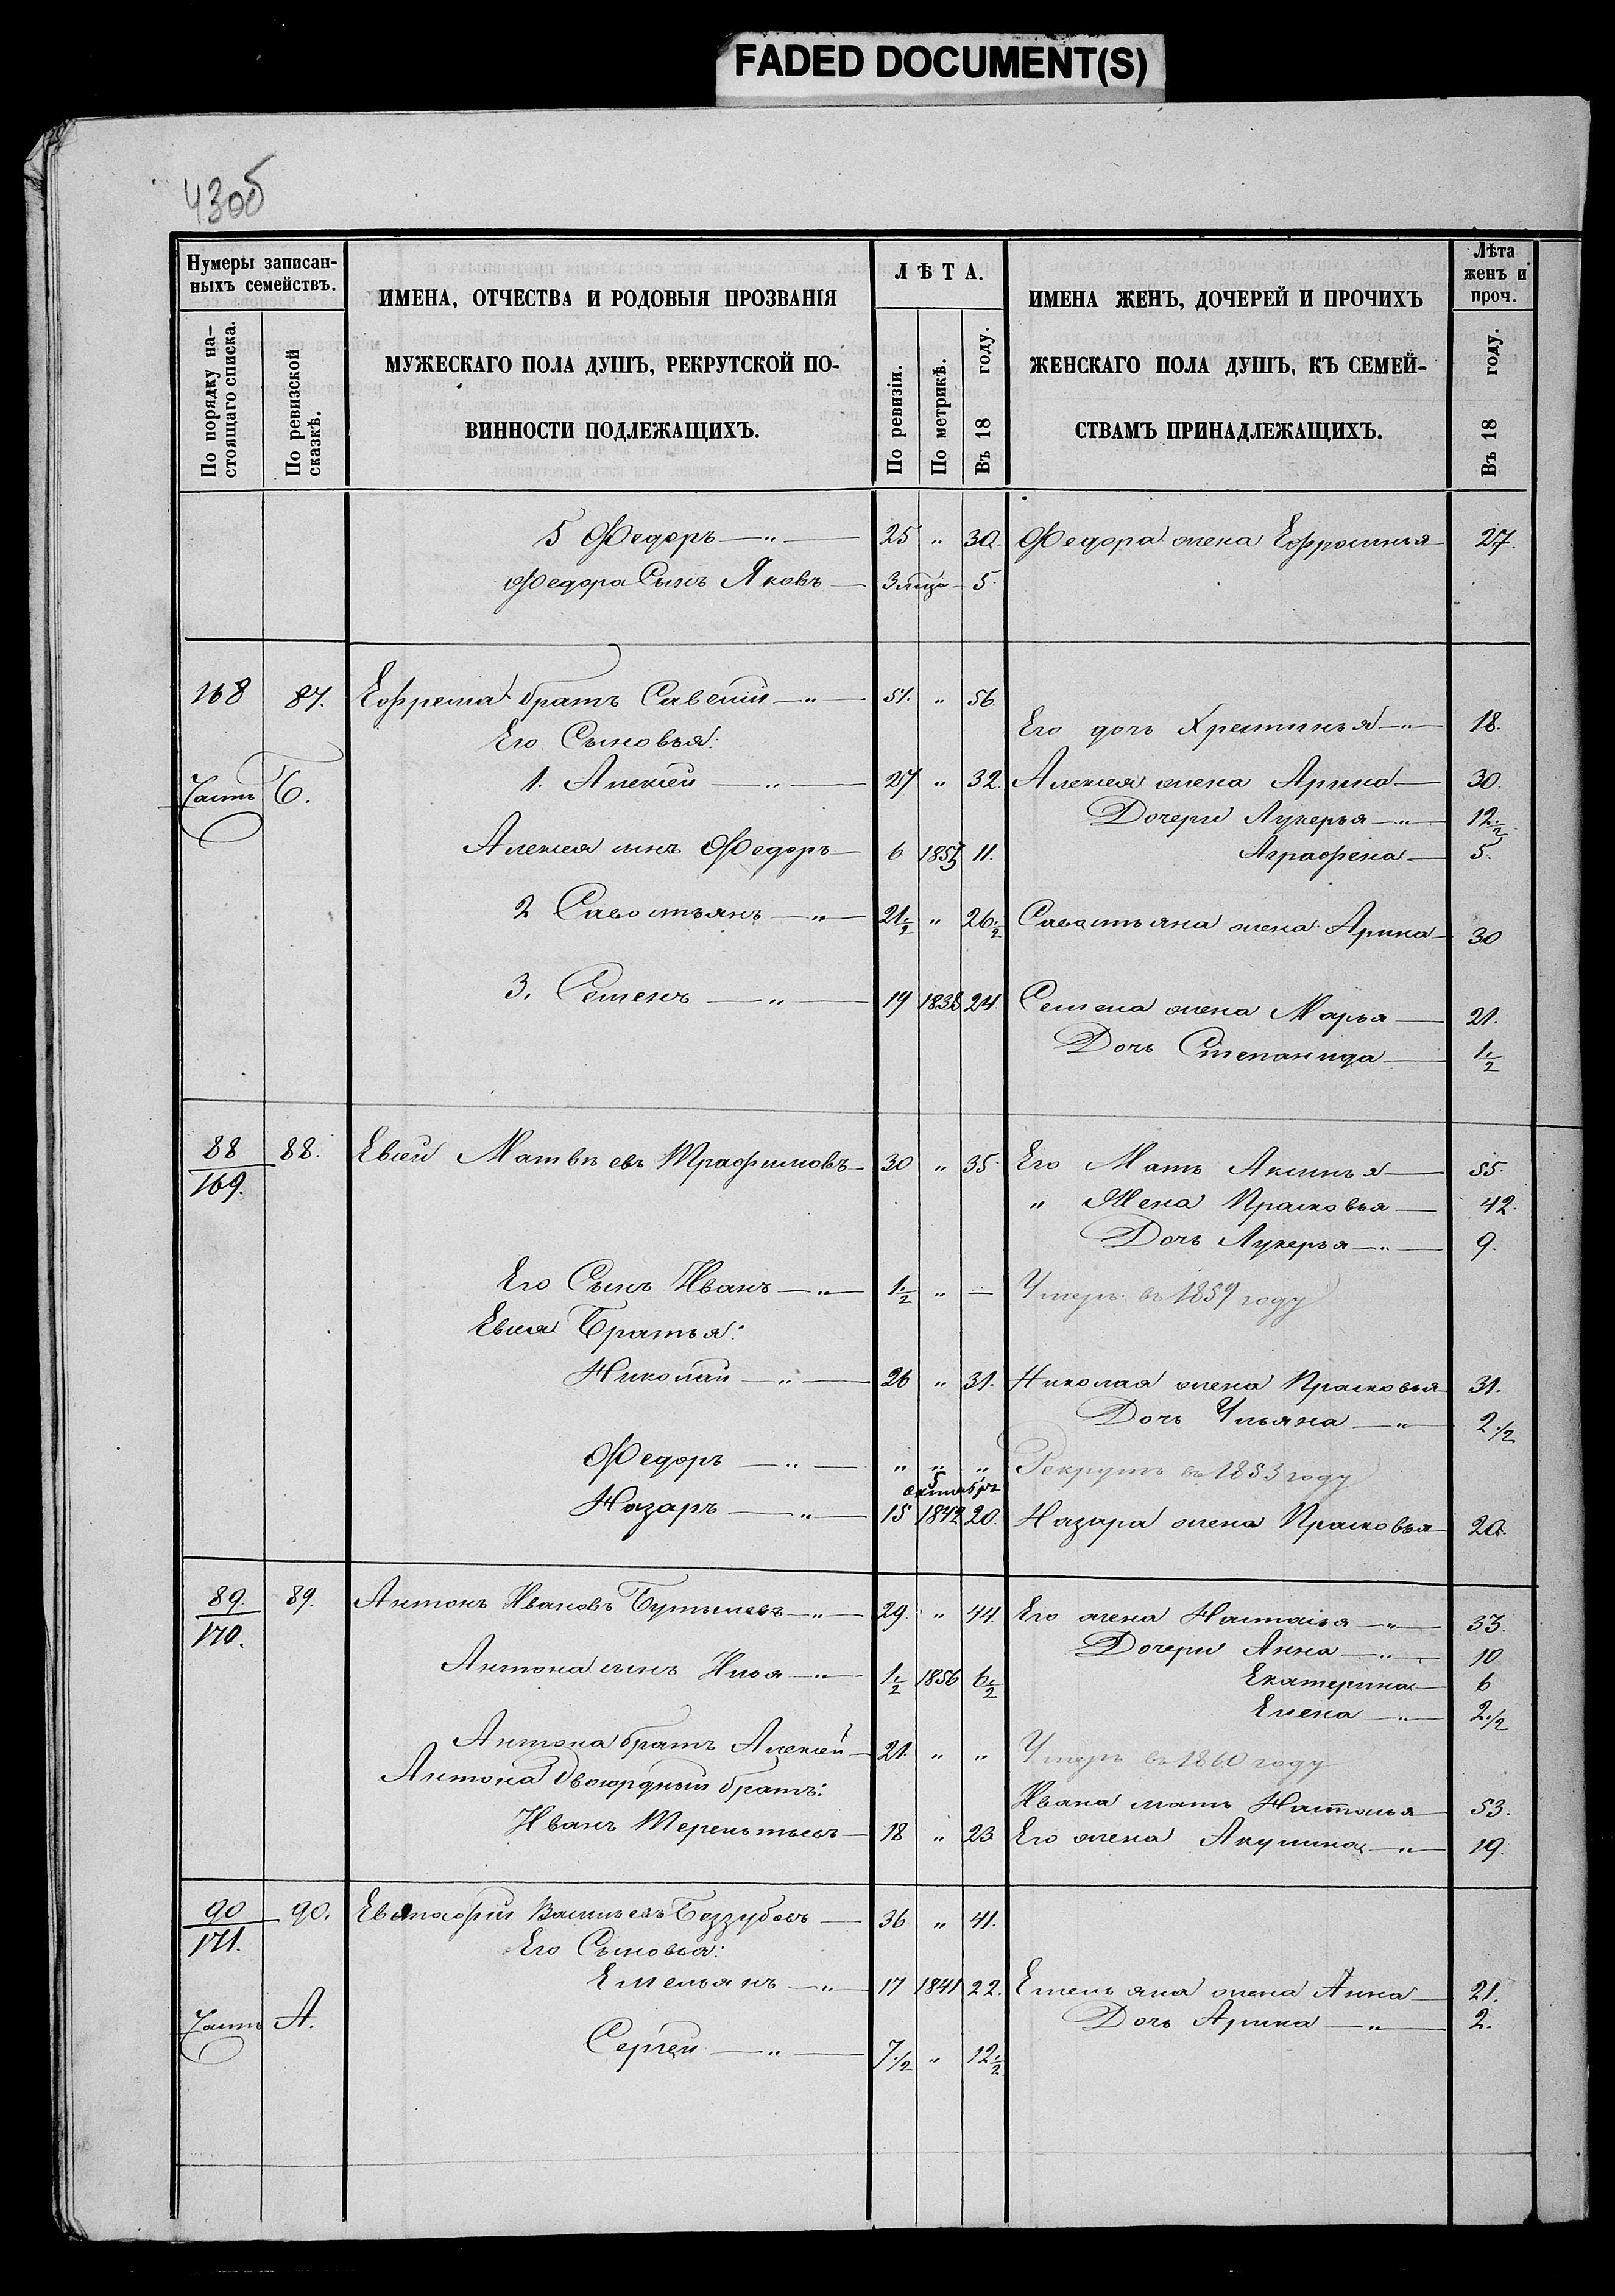 FADED DOCUMENT(S)
43об
Нумеры записан-
ныхъ семействъ.
По порядку на-
стоящаго списка.
По ревизской
сказкѣ.
ИМЕНА, ОТЧЕСТВА И РОДОВЫЯ ПРОЗВАНІЯ
МУЖЕСКАГО ПОЛА ДУШЪ, РЕКРУТСКОЙ ПО-
ВИННОСТИ ПОДЛЕЖАЩИХЪ.
ЛѢТА.
По ревизіи.
По метрикѣ.
Въ 18 году.
ИМЕНА ЖЕНЪ, ДОЧЕРЕЙ И ПРОЧИХЪ
ЖЕНСКАГО ПОЛА ДУШЪ, КЪ СЕМЕЙ-
СТВАМЪ ПРИНАДЛЕЖАЩИХЪ.
Лѣта
женъ и
проч.
Въ 18 году.
5 Федоръ — „ — 25 „ 30. Федора жена Ефросинья 27.
Федора Сынъ Яковъ — 5.
168 87. Ефрема братъ Савелій — „ — 51. „ 56.
Его Сыновья: Его дочь Хрестинья — „ — 18.
Часть Б. 1. Алексей — „ — 27 „ 32. Алексея жена Арина — 30.
Дочери Лукерья — „ — 12 1/2
Алексея сынъ Федоръ — 6 11. Аграфена — 5.
2 Савостьянъ — „ — 21 1/2 „ 26 1/2 Савостьяна жена Арина 30
3. Семенъ — „ — 19 1838 24. Семена жена Марья — 21.
Дочь Степанида — 1 1/2
88/169. 88. Евсей Матвѣевъ Трафимовъ — 30 „ 35. Его Мать Аксинья — 55.
„ Жена Прасковья — 42.
Дочь Лукерья — „ — 9.
Его Сынъ Иванъ — „ — 1 1/2 „ — Умеръ въ 1859 году
Евсея Братья:
Николай — „ — 26 „ 31. Николая жена Прасковья 31.
Дочь Ульяна — „ 2 1/2
Федоръ — „ — „ „ „ Рекрутъ въ 1853 году
5 октября
Назаръ — „ — 15 1842 20. Назара жена Прасковья 20.
89./170. 89. Антонъ Ивановъ — „ — 29. „ 44. Его жена Наталья — „ — 33.
Дочери Анна — „ — 10
Антона сынъ Илья — „ — 1 1/2 1856 6 1/2 Екатерина — 6
Елена — „ — 2 1/2
Антона братъ Алексей — 21. „ „ Умеръ въ 1860 году
Антона двоюрдный братъ:
Ивана мать Наталья 53.
Иванъ Терентьевъ — 18 „ 23 Его жена Акулина — „ — 19.
90/171. 90. Васильевъ Беззубовъ — 36 „ 41.
Его Сыновья:
Емельянъ — „ — 17 1841 22. Емельяна жена Анна — 21.
Часть А. Дочь Арина — „ — 2.
Сергей — „ — 7 1/2 „ 12 1/2